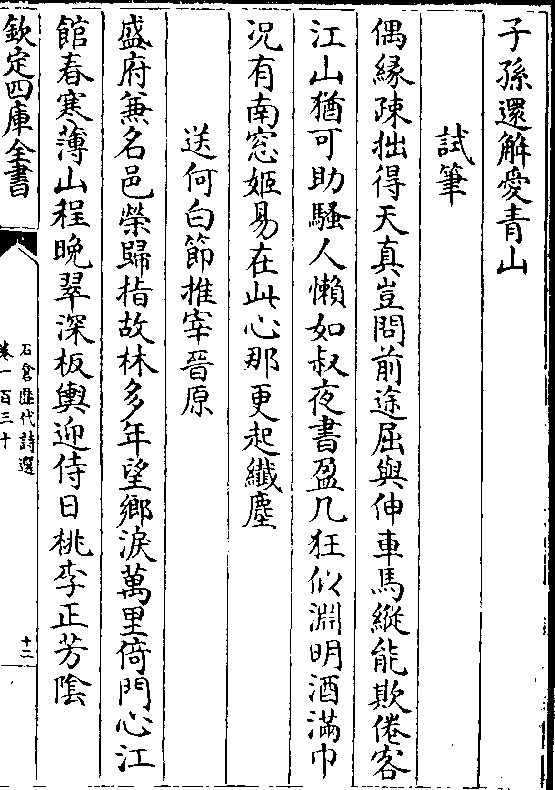 子孫還解愛青山
試筆
偶縁疎拙得天真豈問前途屈與伸車馬縱能欺倦客
江山猶可助騷人懶如叔夜書盈几狂似淵明酒滿巾
况有南窓姬易在此心那更起纎塵
送何白節推宰晉原
盛府兼名邑榮歸指故林多年望鄉淚萬里倚門心江
館春寒薄山程晚翠深板輿迎侍日桃李正芳陰
欽定四庫全書
石倉歴代詩選
卷一百三十
十二